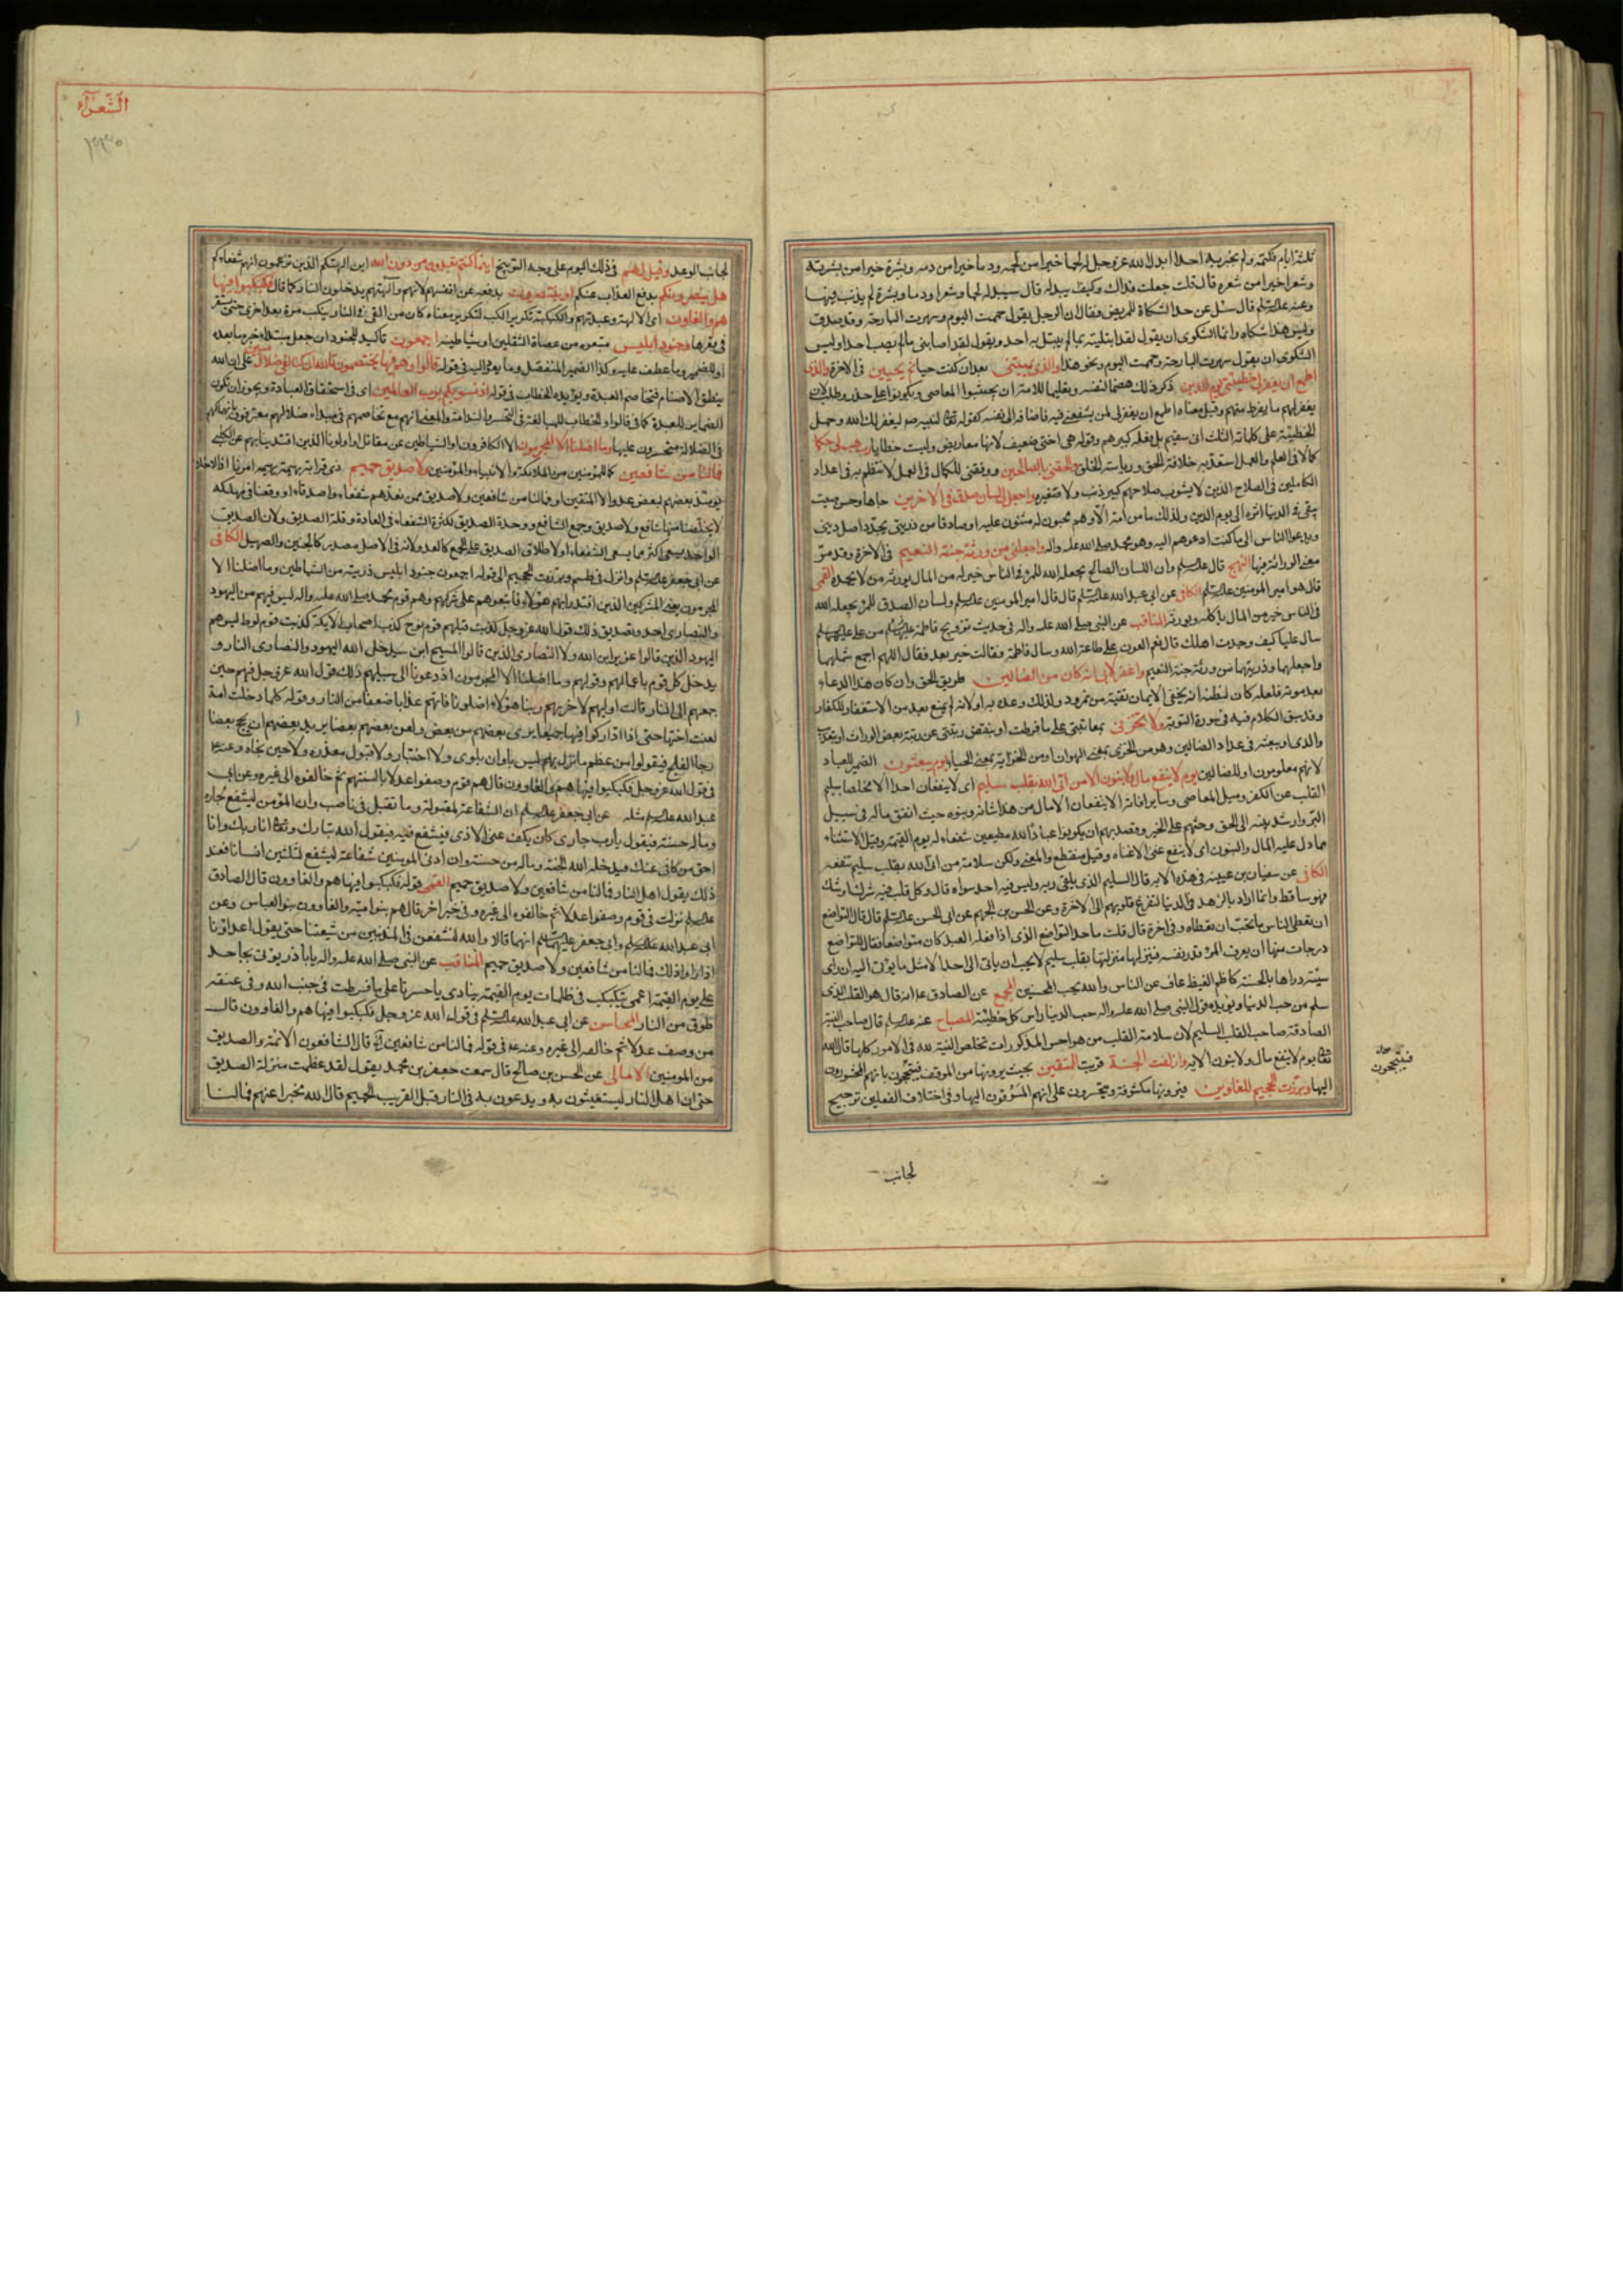 ثلثة ايام فكتمه ولم يخبر به احدا ابدل الله عز وجل له لحما خيرا من لحمه ودما خيرا من دمه وبشرة خيرا من بشرته
وشعرا خيرا من شعره قال قلت جعلت فداك وكيف يبدله قال يبدله لحما وشعرا ودما وبشرة لم يذنب فيها
وعنه عليه السلم قال سئل عن حد الشكاة للمريض فقال ان الرجل يقول حممت اليوم وسهرت البارحة وقد صدق
وليس هذا شكاة وانما الشكوى ان يقول لقد ابتليت بما لم يبتل به احد ويقول لقد اصابني ما لم يصب احدا وليس
الشكوى ان يقول سهرت البارحة وحممت اليوم ونحو هذا والذي يميتني بعد ان كنت حيا ثم يحيين في الاخرة والذي
اطمع ان يغفر لي خطيئتي يوم الدين ذكر ذلك هضما لنفسه وتعليما للامة ان يجتنبوا المعاصي ويكونوا على حذر وطلب لان
يغفر لهم ما يفرط منهم وقيل معناه اطمع ان يغفر لي لمن يشفعني فيه فاضافه الى نفسه كقوله تعالى لنبيه صم ليغفر لك الله وحمل
الخطيئة على كلماته الثلث اني سقيم بل فعله كبيرهم وقوله هي اختي ضعيف لانها معاريض وليست خطايا رب هب لي حكما
كمالا في العلم والعمل استعد به خلافة الحق ورياسة الخلق والحقني بالصالحين ووفقني للكمال في العمل لانتظم به في اعداد
الكاملين في الصلاح الذين لا يشوب صلاحهم كبير ذنب ولا صغيره واجعل لي لسان صدق في الاخرين جاها وحسن صيت
يبقى في الدنيا اثره الى يوم الدين ولذلك ما من امة الا وهم محبون له مثنون عليه او صادقا من ذريتي يجدد اصل ديني
ويدعو الناس الى ما كنت ادعوهم اليه وهو محمد صلى الله عليه واله واجعلني من ورثة جنة النعيم في الاخرة وقد مر
معنى الوراثة فيها النهج قال عليه السلم وان اللسان الصالح يجعله الله للمرء في الناس خير له من المال يورثه من لا يحمده القمي
قال هو امير المؤمنين عليه السلم الكافي عن ابي عبد الله عليه السلم قال قال امير المؤمنين عليه السلم ولسان الصدق للمرء يجعله الله
في الناس خير من المال ياكله ويورثه المناقب عن النبي صلى الله عليه واله في حديث تزويج فاطمة عليهما السلم من علي عليه السلم
سال عليا كيف وجدت اهلك قال نعم العون على طاعة الله وسال فاطمة فقالت خير بعل فقال اللهم اجمع شملهما
واجعلهما وذريتهما من ورثة جنة النعيم واغفر لابي انه كان من الضالين طريق الحق وان كان هذا الدعاء
بعد موته فلعله كان لظنه انه يخفي الايمان تقية من نمرود ولذلك وعده به او لانه لم يمنع بعد من الاستغفار للكفار
وقد سبق الكلام فيه في سورة التوبة ولا تخزني بمعاتبتي على ما فرطت او بنقص رتبتي عن رتبة بعض الوراث او بتعذيب
والدي او ببعثه في عداد الضالين وهو من الخزي بمعنى الهوان او من الخزاية بمعنى الحياء يوم يبعثون الضمير للعباد
لانهم معلومون او للضالين يوم لا ينفع مال ولا بنون الا من اتى الله بقلب سليم اي لا ينفعان احدا الا مخلصا سليم
القلب عن الكفر وميل المعاصي وساير افاته او لا ينفعان الا مال من هذا شانه وبنوه حيث انفق ماله في سبيل
البر وارشد بنيه الى الحق وحثهم على الخير وقصد بهم ان يكونوا عبادا لله مطيعين شفعاء له يوم القيمة وقيل الاستثناء
مما دل عليه المال والبنون اي لا ينفع غنى الا غناه وقيل منقطع والمعنى ولكن سلامة من اتى الله بقلب سليم تنفعه
الكافي عن سفيان بن عيينه في هذه الاية قال السليم الذي يلقى ربه وليس فيه احد سواه قال وكل قلب فيه شرك او شك
فهو ساقط وانما اراد بالزهد في الدنيا لتفرغ قلوبهم الى الاخرة وعن الحسن بن الجهم عن ابي الحسن عليه السلم قال قال التواضع
ان تعطي الناس ما تحب ان تعطاه وفي اخرة قال قلت ما حد التواضع الذي اذا فعله العبد كان متواضعا فقال للتواضع
درجات منها ان يعرف المرء قدر نفسه فينزلها منزلتها بقلب سليم لا يحب ان ياتي الى احد الا مثل ما يؤتى اليه ان راى
سيئة دراها بالحسنة كاظم الغيظ عاف عن الناس والله يحب المحسنين المجمع عن الصادق ع انه قال هو القلب الذي
سلم من حب الدنيا ويؤيده قول النبي صلى الله عليه واله حب الدنيا راس كل خطيئة المصباح عنه عليه السلم قال صاحب النية
الصادقة صاحب القلب السليم لان سلامة القلب من هواجس المذكورات تخلص النية لله في الامور كلها قال الله
تعالى يوم لا ينفع مال ولا بنون الاية وازلفت الجنة قربت للمتقين بحيث يرونها من الموقف فيتبجحون بانهم المحشورون
اليها وبرزت الجحيم للغاوين فيرونها مكشوفة ويتحسرون على انهم المسوقون اليها وفي اختلاف الفعلين ترجيح
فيتبجحون
لجانب
الشعراء
لجانب الوعد وقيل لهم في ذلك اليوم على وجه التوبيخ اينما كنتم تعبدون من دون الله اين الهتكم الذين تزعمون انهم شفعاؤكم
هل ينصرونكم بدفع العذاب عنكم او ينتصرون بدفعه عن انفسهم لانهم والهتهم يدخلون النار كما قال فكبكبوا فيها
هم والغاون اي الالهة وعبدتهم والكبكبة تكرير الكب لتكرير معناه كان من القي في النار ينكب مرة بعد اخرى حتى يستقر
في قعرها وجنود ابليس متبعوه من عصاة الثقلين او شياطينه اجمعون تاكيد للجنود ان جعل مبتداء خبره ما بعده
او للضمير وما عطف عليه وكذا الضمير المنفصل وما يعود اليه في قوله قالوا وهم فيها يختصمون تالله ان كنا لفي ضلال مبين على ان الله
ينطق الاصنام فتخاصم العبدة ويؤيده الخطاب في قوله اذ نسويكم برب العالمين اي في استحقاق العبادة ويجوز ان يكون
الضماير للعبدة كما في قالوا والخطاب للمبالغة في التحسر والندامة والمعنى انهم مع تخاصمهم في مبداء ضلالهم معترفون بانهماكهم
في الضلالة متحسرون عليها وما اضلنا الا المجرمون الا الكافرون او الشياطين عن مقاتل او اولونا الذين اقتدينا بهم عن الكلبي
فما لنا من شافعين كما للمؤمنين من الملائكة والانبياء والمؤمنين ولا صديق حميم ذي قرابة يهمه امرنا اذ الاخلاء
يومئذ بعضهم لبعض عدو الا المتقين او فما لنا من شافعين ولا صديق ممن نعدهم شفعاء واصدقاء او وقعنا في مهلكة
لا يخلصنا منها شافع ولا صديق وجمع الشافع ووحدة الصديق لكثرة الشفعاء في العادة وقلة الصديق ولان الصديق
الواحد يسعى اكثر مما يسعى الشفعاء او لاطلاق الصديق على الجمع كالعدو لانه في الاصل مصدر كالحنين والصهيل الكافي
عن ابي جعفر عليه السلم وانزل في طسم وبرزت الجحيم الى قوله اجمعون جنود ابليس ذريته من الشياطين وما اضلنا الا
المجرمون يعني المشركين الذين اقتدوا بهم هؤلاء فاتبعوهم على شركهم وهم قوم محمد صلى الله عليه واله ليس فيهم من اليهود
والنصارى احد وتصديق ذلك قول الله عز وجل كذبت قبلهم قوم نوح كذب اصحاب الايكة كذبت قوم لوط ليس هم
اليهود الذين قالوا عزير ابن الله ولا النصارى الذين قالوا المسيح ابن الله سيدخل الله اليهود والنصارى النار و
يدخل كل قوم باعمالهم وقولهم وما اضلنا الا المجرمون اذ دعونا الى سبيلهم ذلك قول الله عز وجل فيهم حين
جمعهم الى النار قالت اوليهم لاخريهم ربنا هؤلاء اضلونا فاتهم عذابا ضعفا من النار وقوله كلما دخلت امة
لعنت اختها حتى اذا اداركوا فيها جميعا برئ بعضهم من بعض ولعن بعضهم بعضا يريد بعضهم ان يحج بعضا
رجاء الفلج فيفلتوا من عظم ما نزل بهم ليس باوان بلوى ولا اختبار ولا قبول معذرة ولا حين نجاة وعنه ع
في قول الله عز وجل فكبكبوا فيها هم والغاوون قال هم قوم وصفوا عدلا بالسنتهم ثم خالفوه الى غيره وعن ابي
عبد الله عليه السلم مثله عن ابي جعفر عليه السلم ان الشفاعة لمقبولة وما تقبل في ناصب وان المؤمن ليشفع لجاره
وماله حسنة فيقول يا رب جاري كان يكف عني الاذى فيشفع فيه فيقول الله تبارك وتعالى انا ربك وانا
احق من كافى عنك فيدخله الله الجنة وماله من حسنة وان ادنى المؤمنين شفاعة ليشفع لثلثين انسانا فعند
ذلك يقول اهل النار فما لنا من شافعين ولا صديق حميم القمي قوله فكبكبوا فيها هم والغاوون قال الصادق
عليه السلم نزلت في قوم وصفوا عدلا ثم خالفوه الى غيره وفي خبر اخر قال هم بنو امية والغاوون بنو العباس وعن
ابي عبد الله عليه السلم وابي جعفر عليهما السلم انهما قالا والله لنشفعن في المذنبين من شيعتنا حتى يقول اعداؤنا
اذا راوا ذلك فما لنا من شافعين ولا صديق حميم المناقب عن النبي صلى الله عليه واله يا با ذر يؤتى بجاحد
علي يوم القيمة اعمى يتكبكب في ظلمات يوم القيمة ينادي يا حسرتا على ما فرطت في جنب الله وفي عنقه
طوق من النار المحاسن عن ابي عبد الله عليه السلم في قول الله عز وجل فكبكبوا فيها هم والغاوون قال
من وصف عدلا ثم خالفه الى غيره وعنه ع في قوله فما لنا من شافعين قال الشافعون الائمة والصديق
من المؤمنين الامالي عن الحسن بن صالح قال سمعت جعفر بن محمد يقول لقد عظمت منزلة الصديق
حتى ان اهل النار ليستغيثون به ويدعون به في النار قبل القريب الحميم قال الله مخبرا عنهم فما لنا